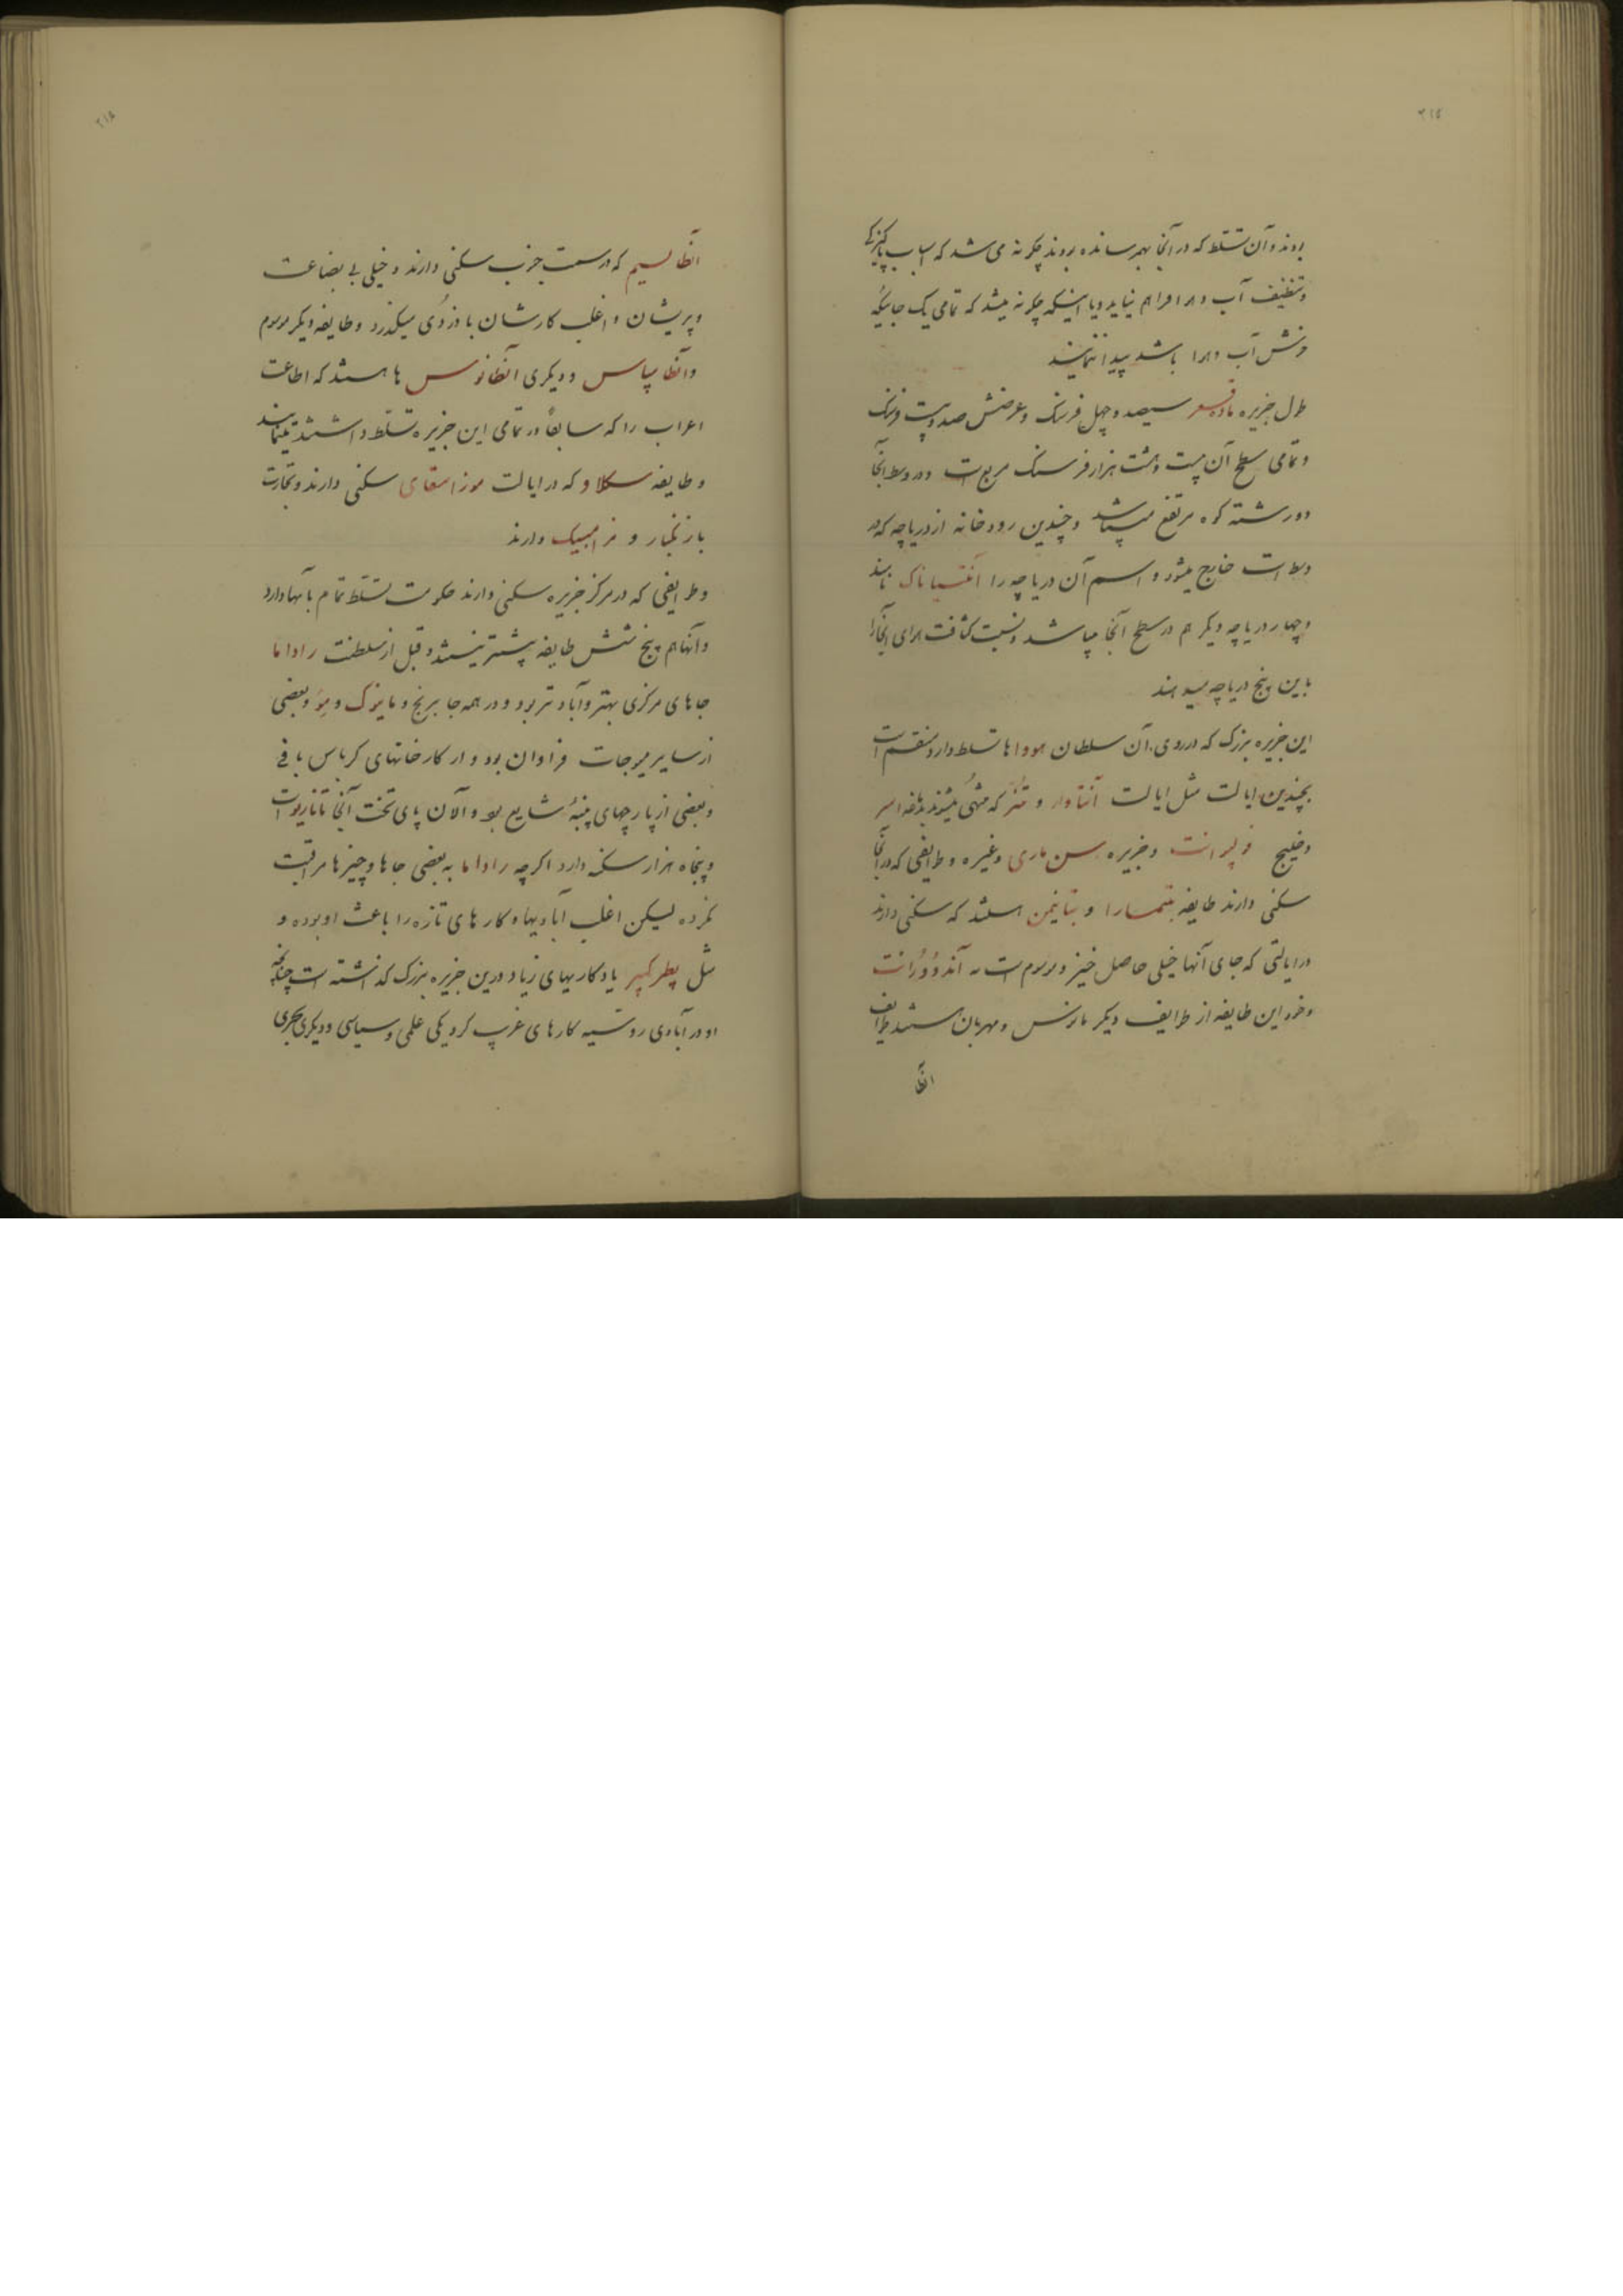 بودند و آن تسلط که در آنجا بهمرسانده بودند چگونه می شد که اسباب پاکیزگی
و تنظیف آب و هوا فراهم نیاید و یا اینکه چگونه میشد که تمامی یک جائیکه
خوش آب و هوا باشد پیدا ننمایند
طول جزیره سیصد و چهل فرسنک و عرضش صد و بیست فرسنک
و تمامی سطح آن بیست و هشت هزار فرسنک مربع است و در وسط آنجا
دو رشته کوه مرتفع میباشد و چندین رودخانه از دریاچه که در
وسط است خارج میشود و اسم آن دریاچه را نامند
و چهار دریاچه دیکر هم در سطح آنجا میباشد و نسبت کثافت هوای آنجا را
باین پنج دریاچه میدهند
این جزیره بزرک که در روی آن سلطان هوواها تسلط دارد منقسم است
بچندین ایالت مثل ایالت آنتاوار و که منتهی میشوند
و خلیج و جزیره سن ماری و غیره و طوایفی که در آنجا
سکنی دارند طایفه بتمسارا و بتانیمن هستند که سکنی دارند
در ایالتی که جای آنها خیلی حاصل خیز و موسوم است به
و خود این طایفه از طوایف دیکر مانوس و مهربان هستند طوایف
انطا
۲۱۸
انطا لسیم که در سمت جنوب سکنی دارند و خیلی بی بضاعت
و پریشان و اغلب کارشان با دزدی میکذرد و طایفه دیکر موسوم
و دیکری آنطانوس ها هستند که اطاعت
اعراب را که سابقاً در تمامی این جزیره تسلط داشتند
و طایفه سکلاو که در ایالت سکنی دارند و تجارت
با زنکبار و مزامبیک دارند
و طوایفی که در مرکز جزیره سکنی دارند حکومت تسلط تمام بآنها دارد
و آنها هم پنج شش طایفه بیشتر نیستند و قبل از سلطنت راداما
جاهای مرکزی بهتر و آبادتر بود و در همه جا برنج و مانیوک و مو و بعضی
از سایر میوجات فراوان بود و از کارخانهای کرباس بافی
و بعضی از پارچهای پنبهٔ شایع بود و الآن پای تخت آنجا تاناریو است
و پنجاه هزار سکنه دارد اکرچه راداما به بعضی جاها و چیزها مراقبت
نکرده لیکن اغلب آبادیها و کارهای تازه را باعث او بوده و
مثل پطر کبیر یادکاریهای زیاد درین جزیره بزرک کذاشته است چنانچه
او در آبادی روسیه کارهای غریب کرد یکی علمی و سیاسی و دیکری بحری